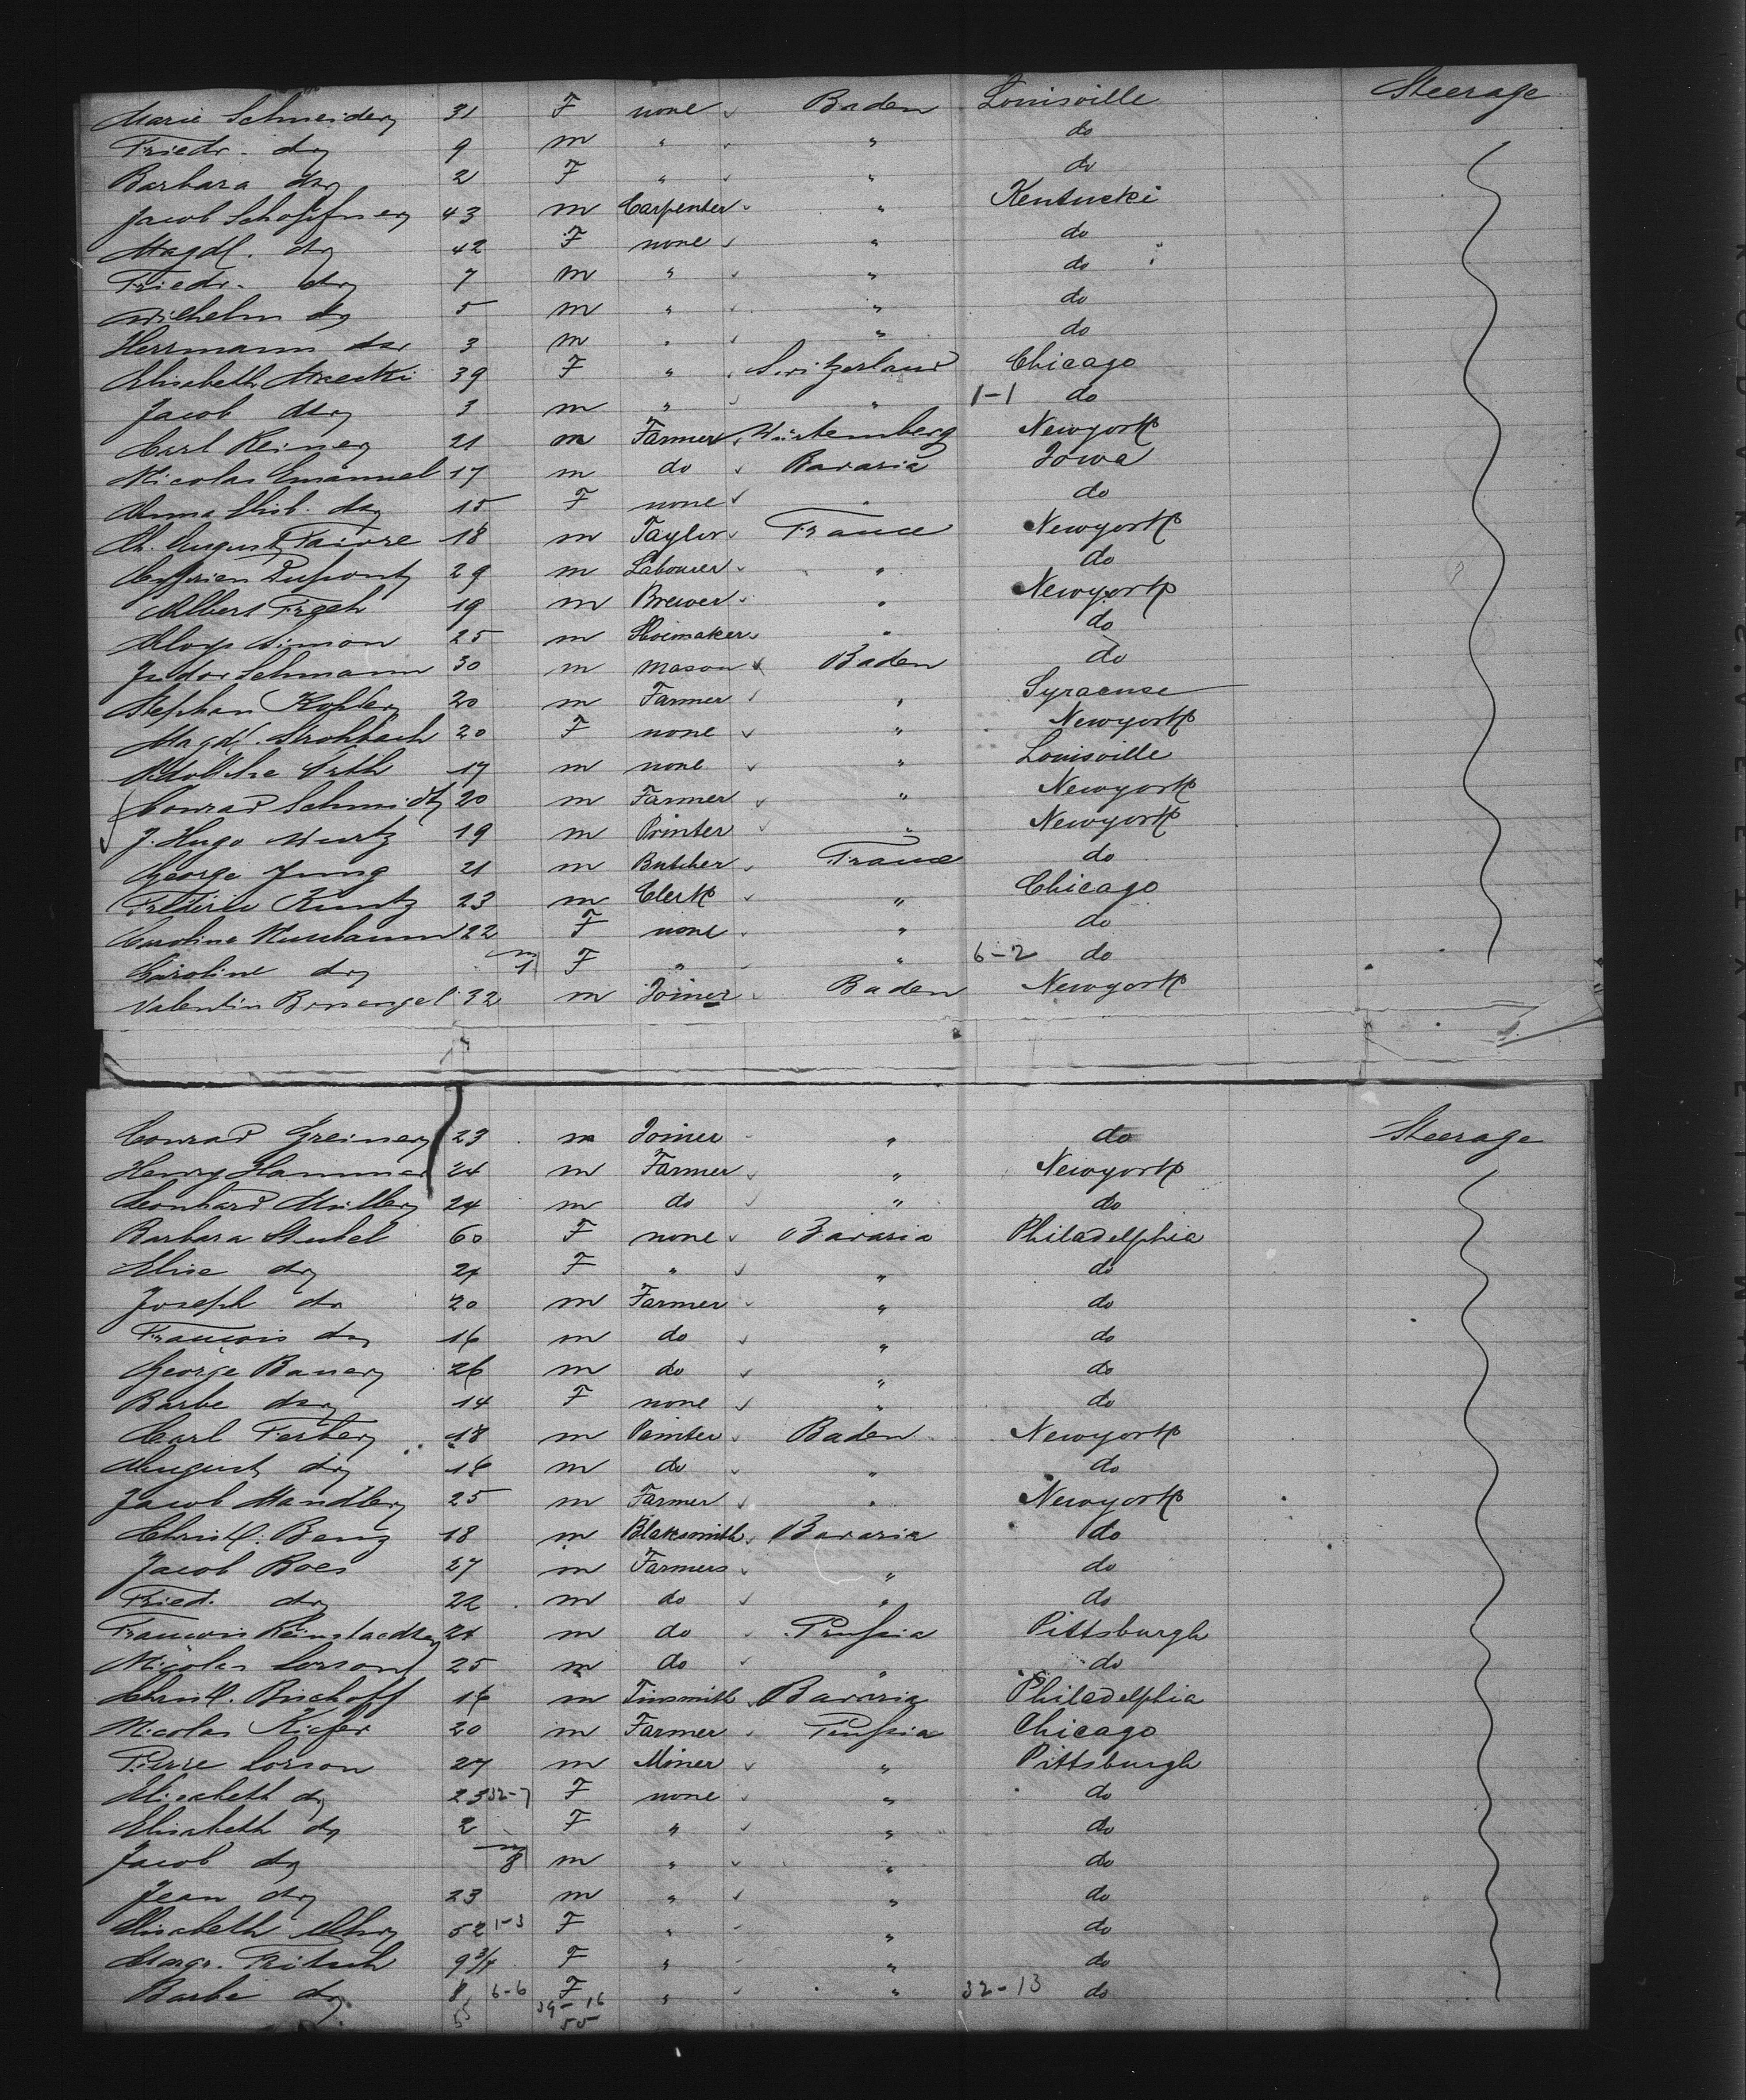 Marie Schneider 31 F none Baden Louisville Steerage
Friedr. do 9 m " " do
Barbara do 2 F " " do
Jacob 43 m Carpenter " Kentucki
Magdl. do 42 F none " do
Friedr. do 7 m " " do
Wilhelm do 5 m " " do
Herrmann do 3 m " " do
Elisabeth 39 F " Switzerland Chicago
Jacob do 3 m " " 1-1 do
Carl Reiner 21 m Farmer Würtemberg Newyork
Nicolas Emanuel 17 m do Bavaria Iowa
Anna Elis. do 15 F none " do
August Faivre 18 m Taylor France Newyork
Cyprien Dupont 29 m Labourer " do
Albert 19 m Brewer " Newyork
Aloys Simon 25 m Shoemaker " do
Isidor Lehmann 30 m Mason Baden do
Stephan Kohler 20 m Farmer " Syracuse
Magdl. Strohbach 20 F none " Newyork
17 m none " Louisville
Conrad Schmidt 20 m Farmer " Newyork
J. Hugo Wurtz 19 m Printer " Newyork
George Jung 21 m Butcher France do
Fréderic Kuntz 23 m Clerk " Chicago
Caroline Nussbaum 22 F none " do
Caroline do m 1 F " " 6-2 do
Valentin 32 m Joiner Baden Newyork
Conrad Greiner 23 m Joiner " do Steerage
Henry Hammer 24 m Farmer " Newyork
Leonhard Müller 24 m do " do
Barbara 60 F none Bavaria Philadelphia
Elise do 24 F " " do
Joseph do 20 m Farmer " do
François do 16 m do " do
George Bauer 26 m do " do
Barbe do 14 F none " do
Carl Ferber 18 m Painter Baden Newyork
August do 16 m do " do
Jacob Mandler 25 m Farmer " Newyork
Christ. Benz 18 m Blaksmith Bavaria do
Jacob Boes 27 m Farmers " do
Fried. do 22 m do " do
Francois 24 m do Prussia Pittsburgh
Nicolas Lorson 25 m do " do
Christ. Bischoff 16 m Tinsmith Bavaria Philadelphia
Nicolas Kiefer 20 m Farmer Prussia Chicago
Pierre Lorson 27 m Miner " Pittsburgh
Elisabeth do 23 32-7 F none " do
Elisabeth do 2 F " " do
Jacob do m 8 m " " do
Jean do 23 m " " do
Elisabeth 52 1-3 F " " do
Margr. Fritsch 9 3/4 F " " do
Barbe do 8 6-6 F " " 32-13 do
39-16
55